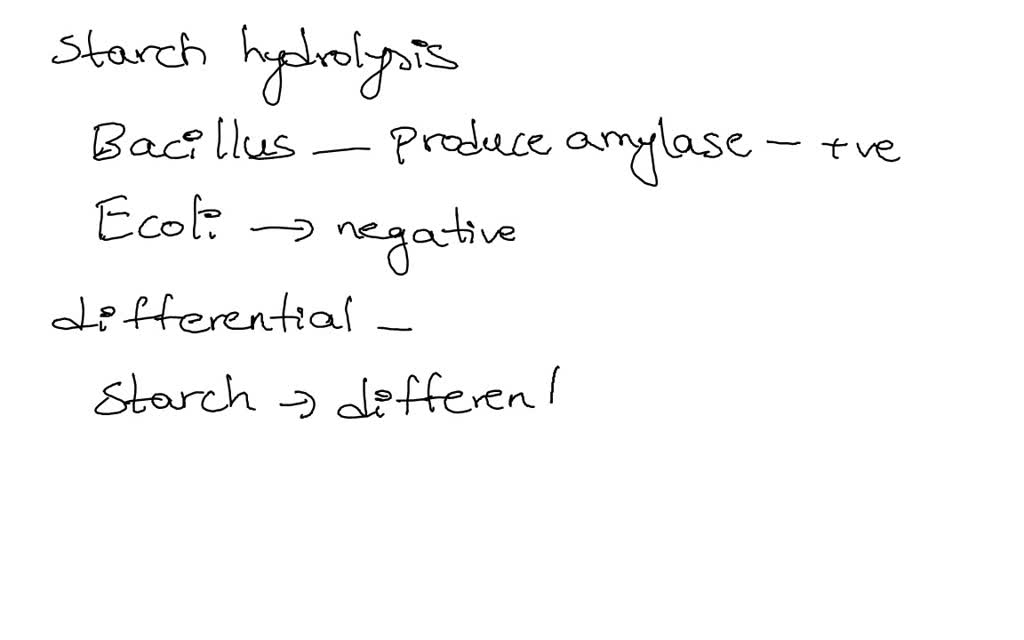 Starch hydrolysis
Bacillus — Produce amylase — +ve
Ecoli → negative
differential —
Starch → differen